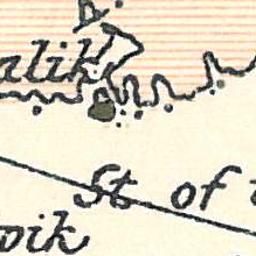 alik
St of
oik